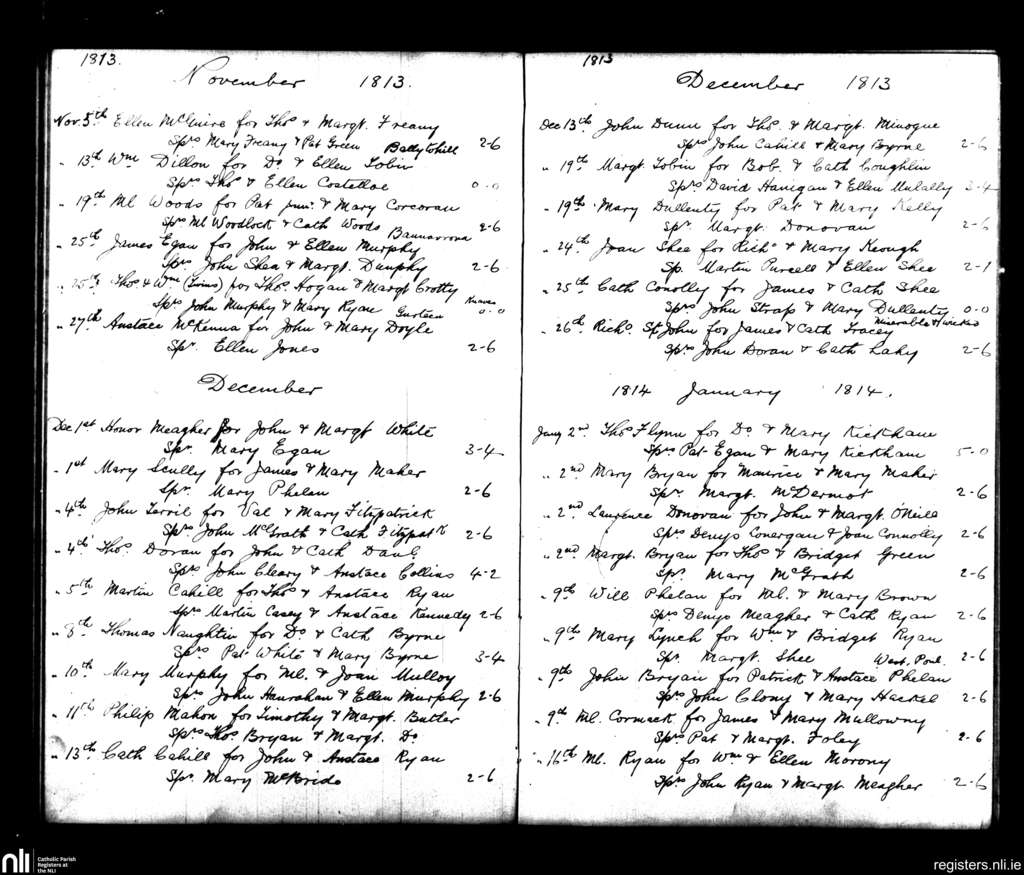 1813.
November 1813.
Nov. 5th Ellen McGuire for Thos & Margt. Freany
Sprs Mary Freany & Pat Green Ballytohill 2-6
" 13th Wm Dillon for Do & Ellen Tobin
Sprs Thos & Ellen Costelloe 0-0
" 19th Ml Woods for Pat junr. & Mary Corcoran
Sprs Ml Woodlock & Cath Woods Bannarrona 2-6
" 25th James Egan for John & Ellen Murphy
Sprs John Shea & Margt. Dunphy 2-6
" 25th Thos & Wm (Twins) for Thos. Hogan & Margt Crotty
Sprs John Murphy & Mary Ryan Gurteen Knaves 0-0
" 27th Anstace McKenna for John & Mary Doyle
Spr. Ellen Jones 2-6
December
Dec 1st Honor Meagher for John & Margt White
Spr. Mary Egan 3-4
" 1st Mary Scully for James & Mary Maher
Spr. Mary Phelan 2-6
" 4th John Terril for Val & Mary Fitzpatrick
Sprs John McGrath & Cath Fitzpatk 2-6
" 4th Thos. Doran for John & Cath
Sprs John Cleary & Anstace Collins 4-2
" 5th Martin Cahill for Thos & Anstace Ryan
Sprs Martin Casey & Anstace Kennedy 2-6
" 8th Thomas Naughtin for Do & Cath Byrne
Sprs Pat White & Mary Byrne 3-4
" 10th Mary Murphy for Ml. & Joan Mulloy
Sprs John Hanrahan & Ellen Murphy 2-6
" 11th Philip Mahon for Timothy & Margt. Butler
Sprs Thos Bryan & Margt. Do
" 13th Cath Cahill for John & Anstace Ryan
Spr. Mary McBride 2-6
1813
December 1813
Dec 13th John Dunn for Thos. & Margt. Minogue
Sprs John Cahill & Mary Byrne 2-6
" 19th Margt Tobin for Bob. & Cath Coughlin
Sprs David Hanigan & Ellen Mulally 3-4
" 19th Mary Dullenty for Pat & Mary Kelly
Spr. Margt. Donovan 2-6
" 24th Joan Shee for Richd & Mary Keough
Sp. Martin Purcell & Ellen Shee 2-1
" 25th Cath Conolly for James & Cath Shea
Sprs John Strap & Mary Dullenty 0-0
" 26th Richd. St John for James & Cath Tracey Miserable & wicked
Sprs John Doran & Cath Lahy 2-6
1814 January 1814.
Jany 2nd Thos Flynn for Do & Mary Kickham
Sprs Pat Egan & Mary Kickham 5-0
" 2nd Mary Bryan for Maurice & Mary Maher
Spr. Margt. McDermot 2-6
" 2nd Laurence Donovan for John & Margt. O'Neill
Sprs Denys Conergan & Joan Connolly 2-6
" 2nd Margt. Bryan for Thos & Bridget Green
Spr. Mary McGrath 2-6
" 9th Will Phelan for Ml. & Mary Brown
Sprs Denys Meagher & Cath Ryan 2-6
" 9th Mary Lynch for Wm & Bridget Ryan
Spr. Margt. Shee West. Poul. 2-6
" 9th John Bryan for Patrick & Anstace Phelan
Sprs John Clony & Mary Hackel 2-6
" 9th Ml. Cormack for James & Mary Mullowny
Sprs Pat & Margt. Foley 2-6
" 16th Ml. Ryan for Wm & Ellen Morony
Sprs John Ryan & Margt Meagher 2-6
nli
Catholic Parish
Registers at
the NLI
registers.nli.ie